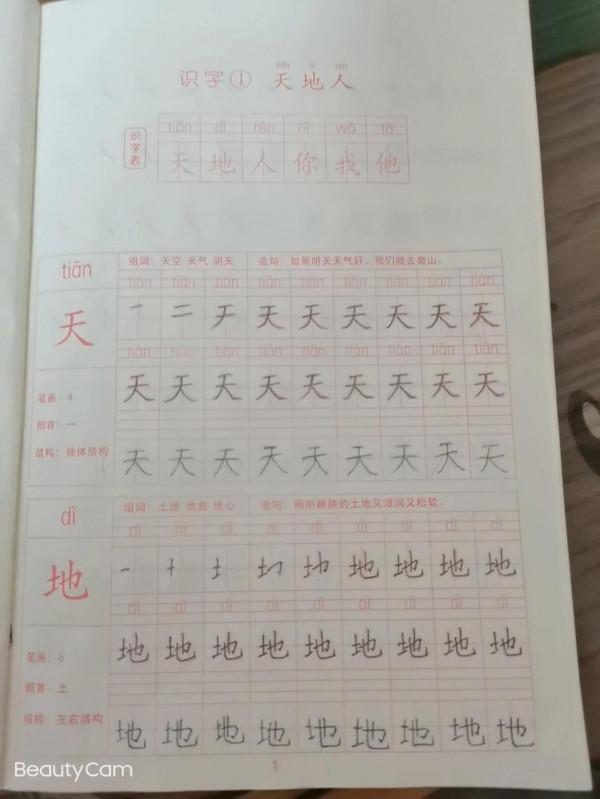 tiān dì rén
识字① 天地人
识字表
tiān dì rén nǐ wǒ tā
天 地 人 你 我 他
tiān
组词：天空 天气 阴天 造句：如果明天天气好，我们就去爬山。
tiān tiān tiān tiān tiān tiān tiān tiān tiān
天
一 二 チ 天 天 天 天 天 天
tiān tiān tiān tiān tiān tiān tiān tiān tiān
天 天 天 天 天 天 天 天 天
笔画：4
部首：一
结构：独体结构
天 天 天 天 天 天 天 天 天
dì
组词：土地 地表 地心 造句：刚刚翻耕的土地又湿润又松软。
dì dì dì dì dì dì dì dì dì
地
地 地 地 地
dì dì dì dì dì dì dì dì dì
地 地 地 地 地 地 地 地 地
笔画：6
部首：土
结构：左右结构
地 地 地 地 地 地 地 地 地
1
BeautyCam